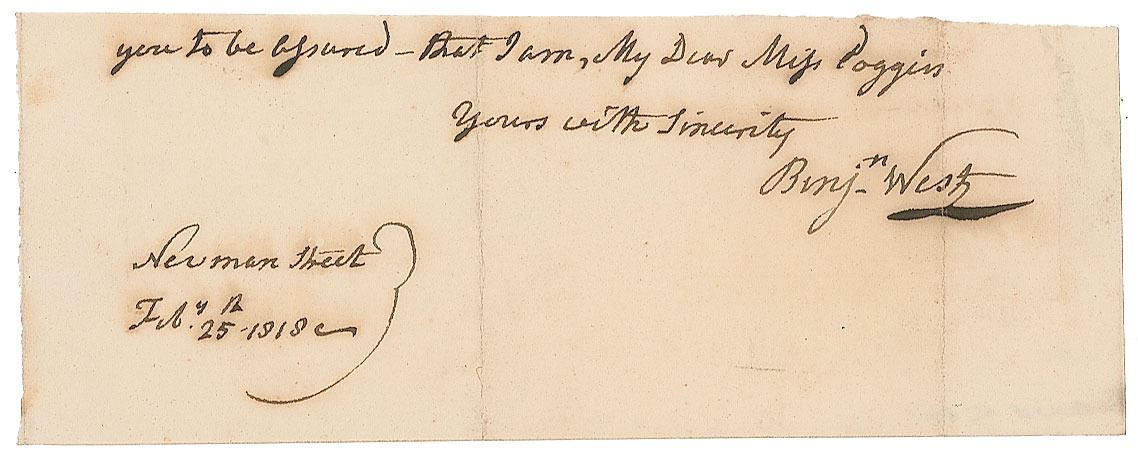 you to be assured – that I am, My Dear Miss Poggin
Yours with Sincerity
Benj.n West
Newman Street
Feb.y 25th 1818